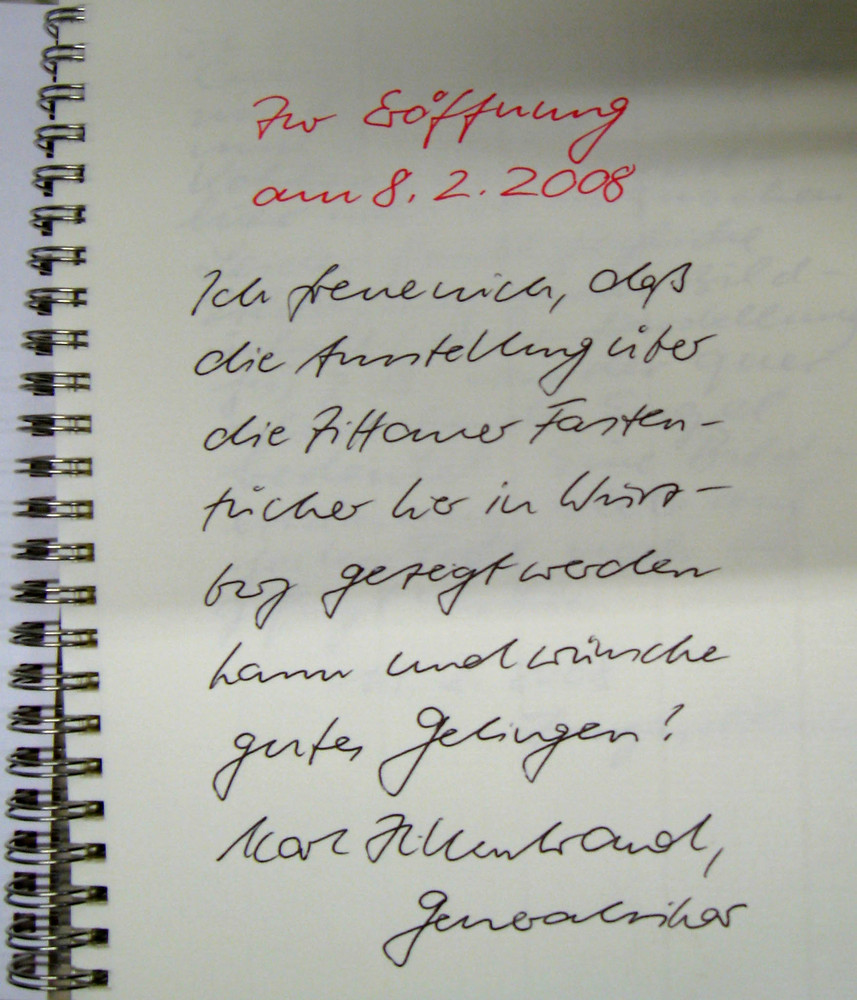 Zur Eröffnung
am 8. 2. 2008
Ich freue mich, daß
die Ausstellung über
die Zittauer Fasten-
tücher hier in Würz-
burg gezeigt werden
kann und wünsche
gutes Gelingen!
Karl Hillenbrand,
Generalvikar